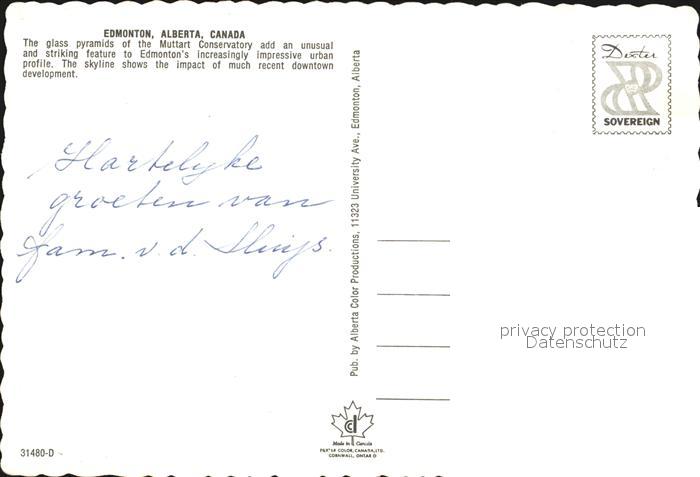 EDMONTON, ALBERTA, CANADA
The glass pyramids of the Muttart Conservatory add an unusual
and striking feature to Edmonton's increasingly impressive urban
profile. The skyline shows the impact of much recent downtown
development.
Hartelyke
groeten van
fam. v. d. Sluijs.
Pub. by Alberta Color Productions, 11323 University Ave., Edmonton, Alberta
Dexter
SOVEREIGN
privacy protection
Datenschutz
Made in Canada
DEXTER COLOR, CANADA, LTD.
CORNWALL, ONTARIO
31480-D